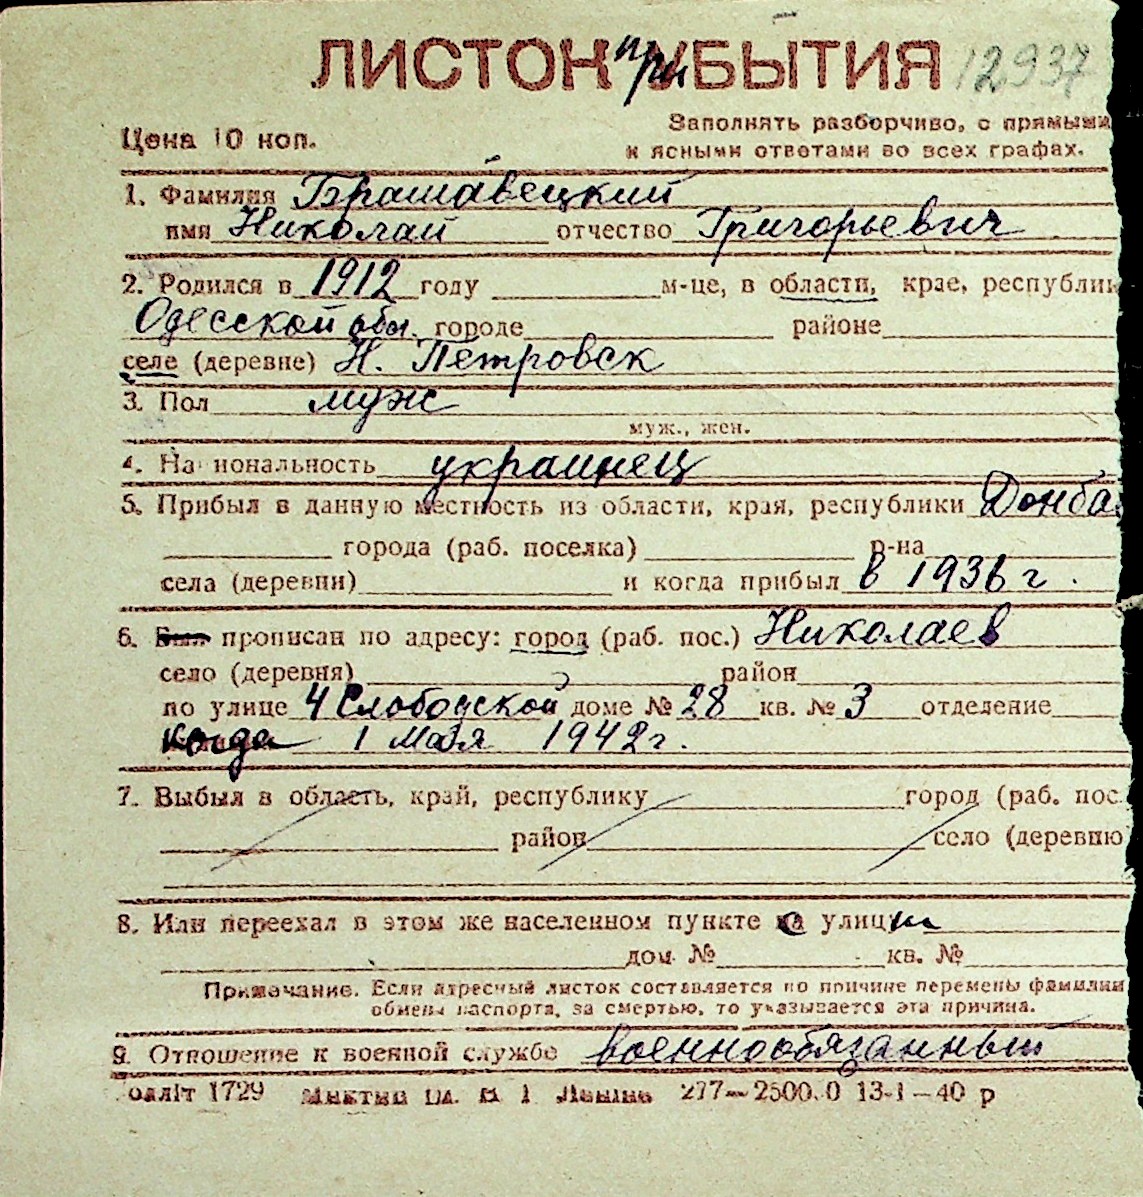 ЛИСТОК прибытия 12937
Цена 10 коп.
Заполнять разборчиво, с прямыми
и ясными ответами во всех графах.
1. Фамилия Брашавецкий
имя Николай отчество Григорьевич
2. Родился в 1912 году м-це, в области, крае, республик
Одесской обл. городе районе
селе (деревне) Н. Петровск
3. Пол муж
муж., жен.
4. Национальность украинец
5. Прибыл в данную местность из области, края, республики Донба
города (раб. поселка) р-на
села (деревни) и когда прибыл в 1936 г.
6. Был прописан по адресу: город (раб. пос.) Николаев
село (деревня) район
по улице 4 Слободской доме № 28 кв. № 3 отделение
когда 1 мая 1942 г.
7. Выбыл в область, край, республику город (раб. пос.
район село (деревню
8. Или переехал в этом же населенном пункте с улицы
дом № кв. №
Примечание. Если адресный листок составляется по причине перемены фамилии
обмены паспорта, за смертью, то указывается эта причина.
9. Отношение к военной службе военнообязанный
1729 277—2500.0 13-1-40 р